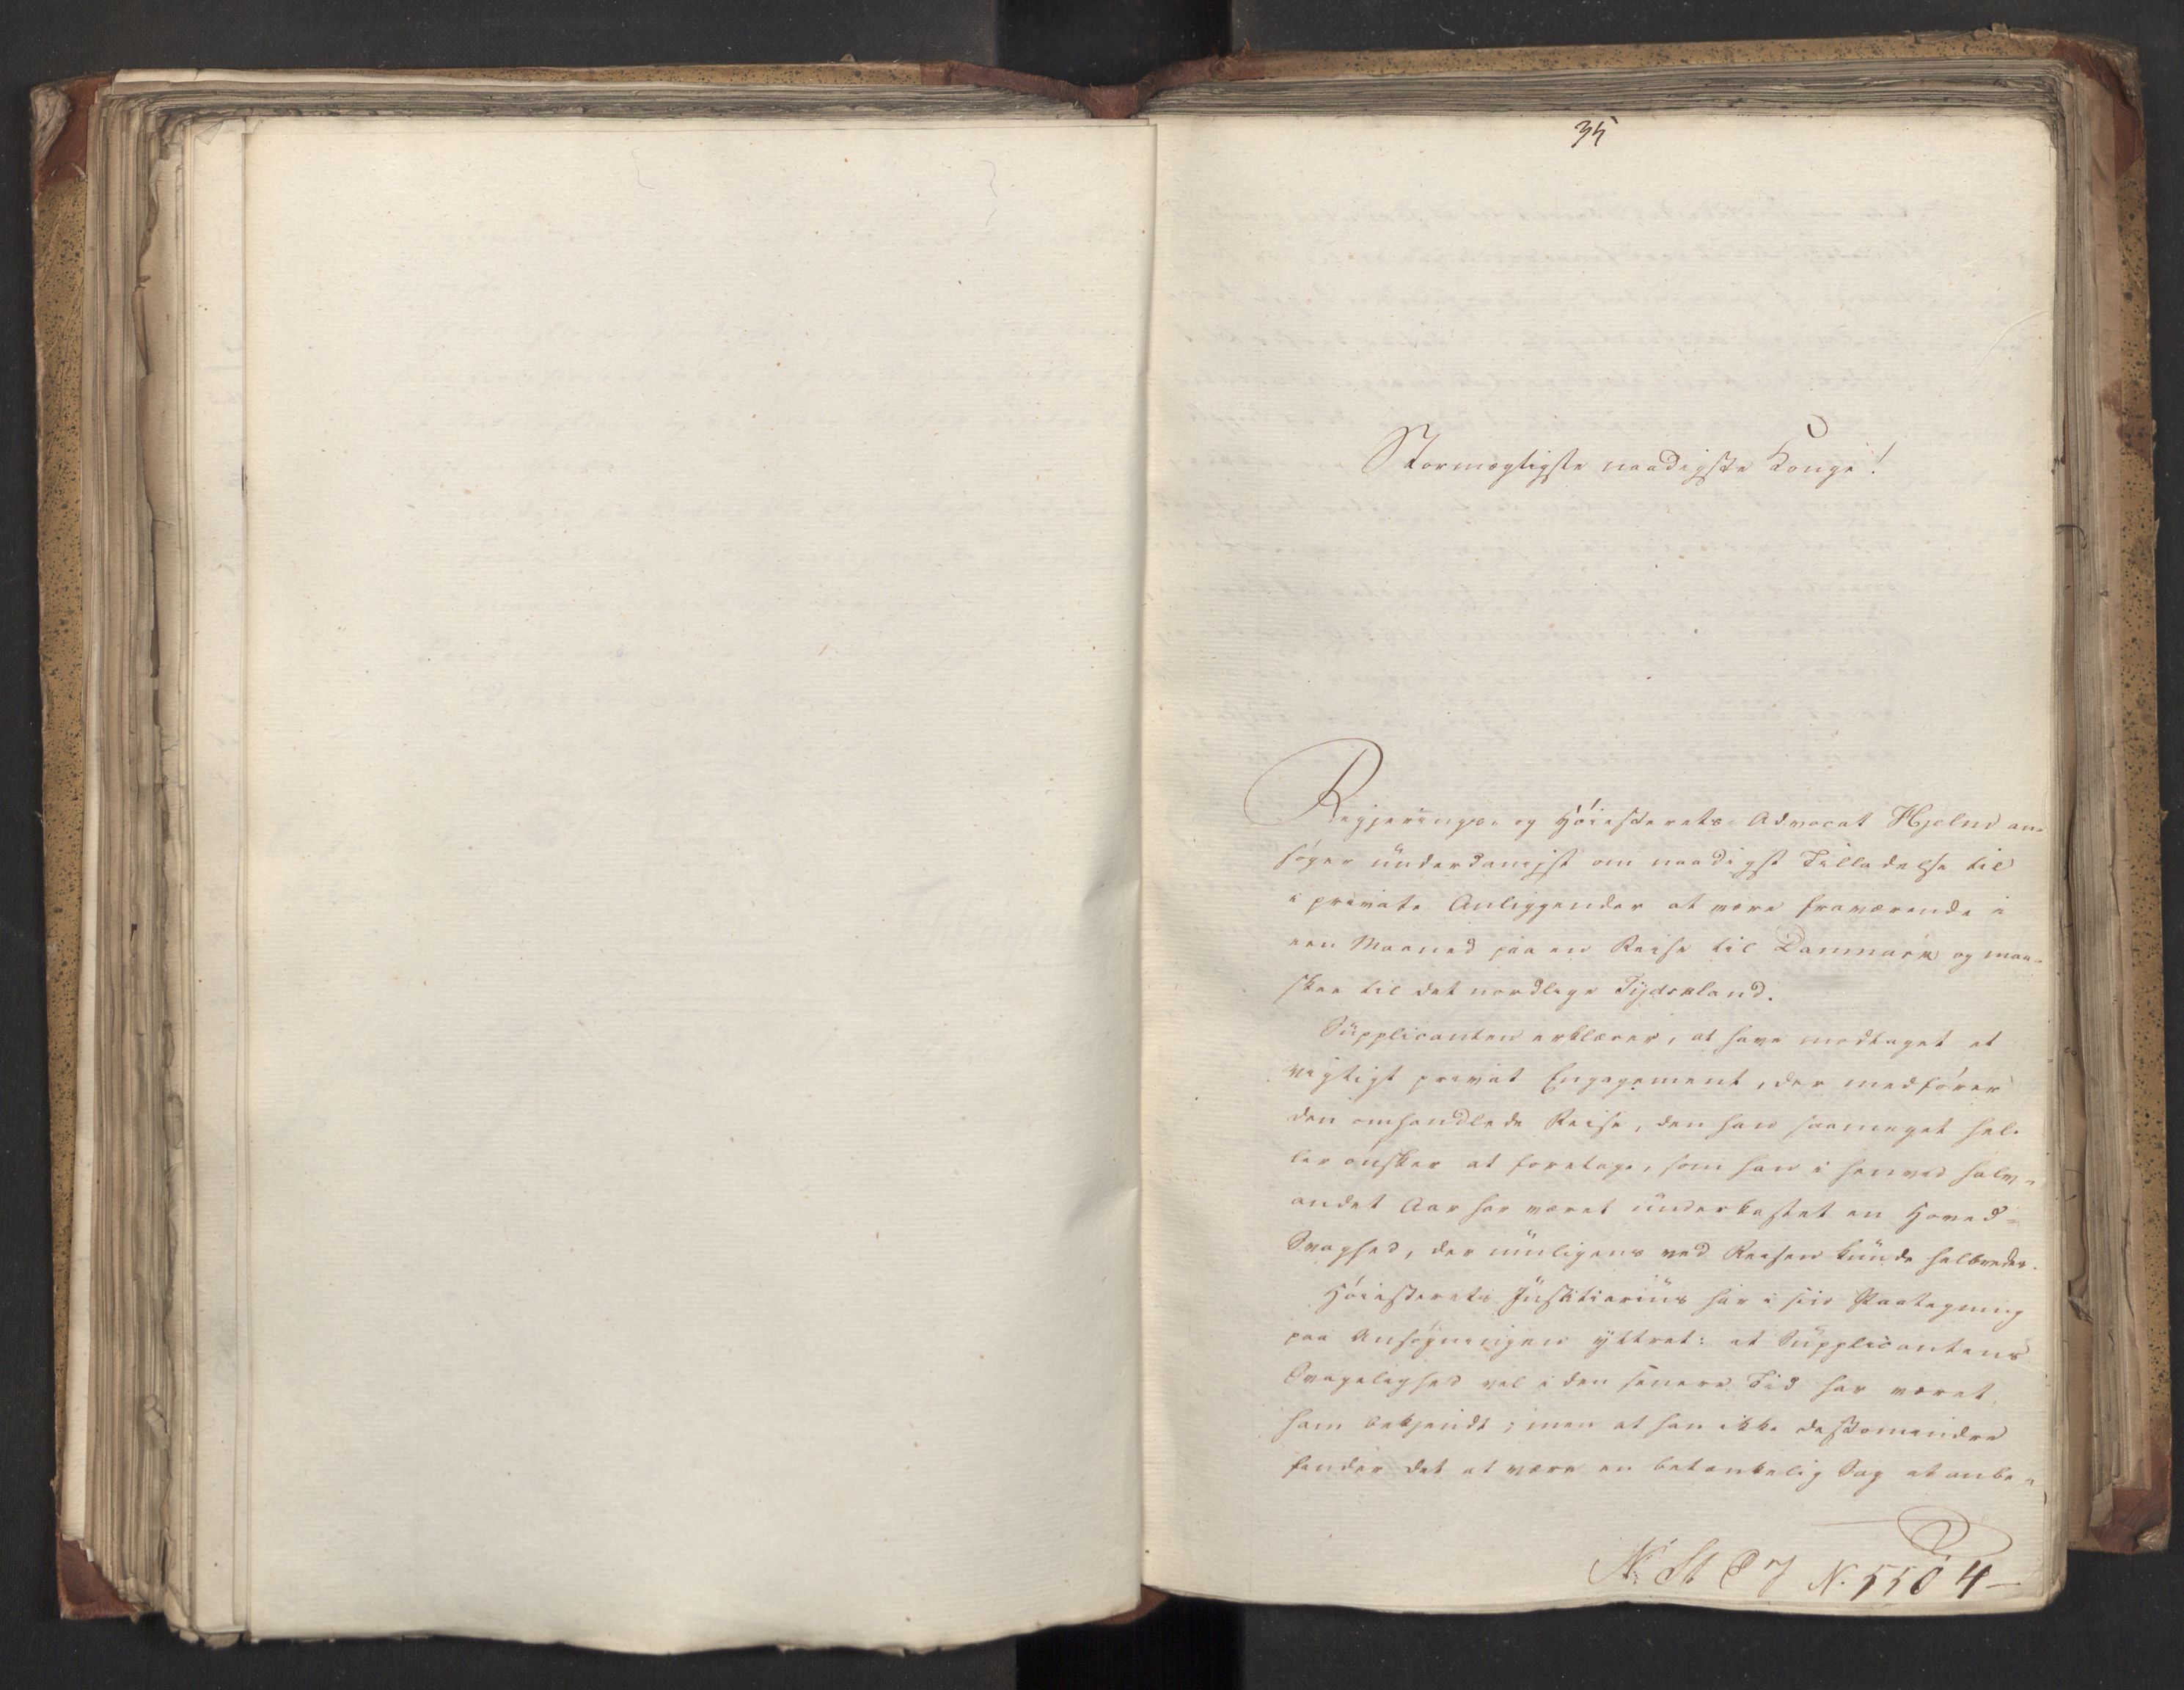 35
Stormægtigste naadigste Konge!
Regjerings- og Höiesterets-Advocat Hjelm an-
söger underdanigst om naadigst Tilladelse til
i private Anliggender at være fraværende i
een Maaned paa en Reise til Danmark og maa-
skee til det nordlige Tydskland.
Supplicanten erklærer, at have modtaget et
vigtigt privat Engagement, der medförer
den omhandlede Reise, den han saameget hel-
ler önsker at foretage, som han i henved halv-
andet Aar har været underkastet en Hoved-
Svaghed, der muligens ved Reisen kunde helbredes.
Höiesterets Justitiarius har i sin Paategning
paa Ansögningen yttret: at Supplicantens
Svagelighed vel i den senere Tid har været
ham bekjendt; men at han ikke destomindre
finder det at være en betænkelig Sag at anbe-
N. St E 7 N. 5504